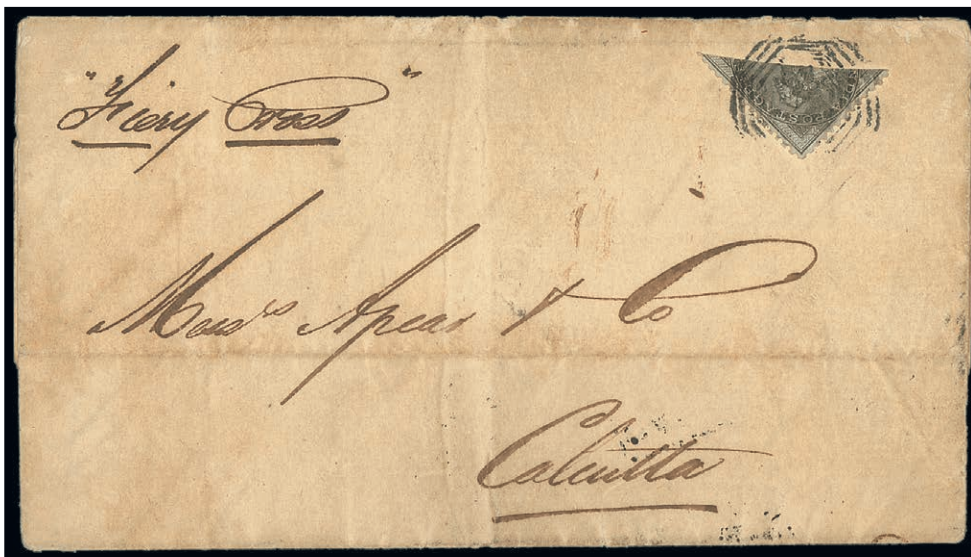 "Fiery Cross"
Mess^rs Apcar & Co
Calcutta